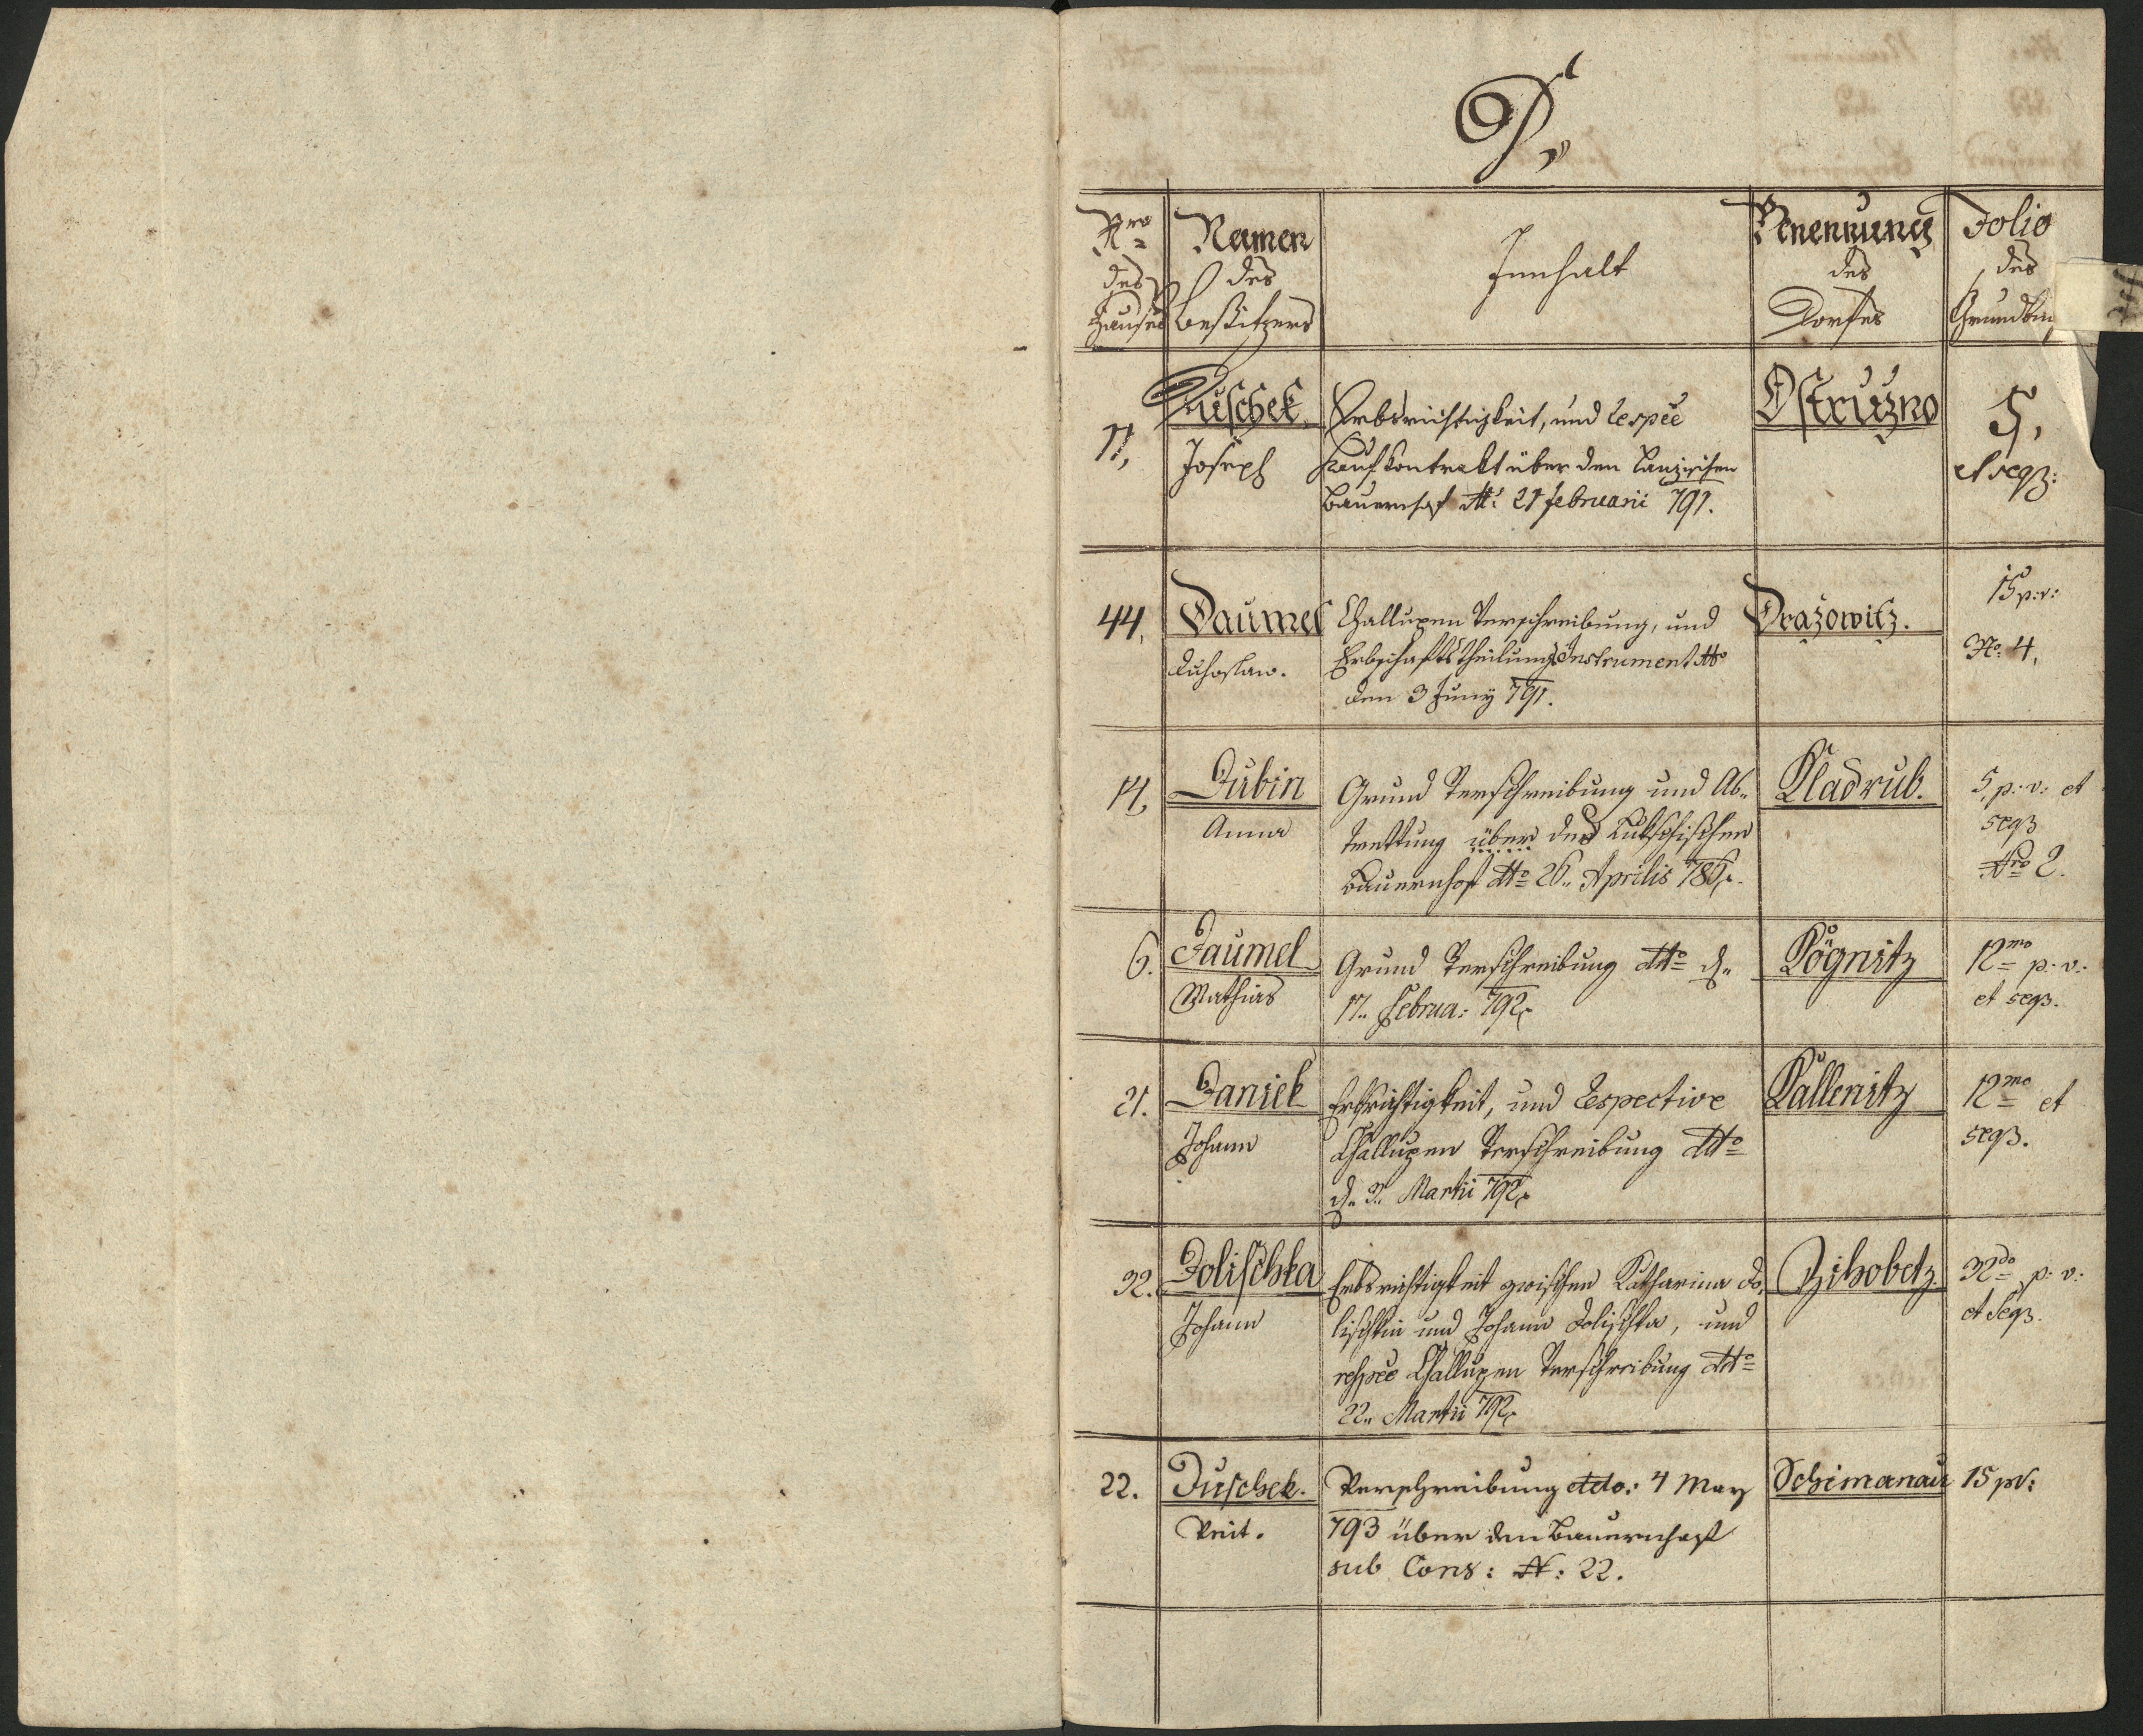 D.
Nro
des
Hauses
Namen
des
Besitzers
Innhalt
Benennung
des
Dorfes
Folio
des
Grundbu
11,
Duschek
Joseph
Erbsrichtigkeit, und respée
Kaufkontrakt über den
Bauernhof dtt: 21 februarii 791.
Ostružno
5,
et seqz:
44,
Daumel
Duhoslaw.
Challupen Verschreibung, und
Erbschafts theilungs Instrument ddto
den 3 Juny 791.
Dražowitz.
15 p:v:
No: 4,
14,
Dubin
Anna
Grund Verschreibung und Ab-
trettung über des
Bauernhof ddto 26. Aprilis
Kladrub.
5, p: v: et
seqz
Nro 2.
6.
Daumel
Mathias
Grund Verschreibung ddto d.
17. Februa: 792.
Kögnitz
12mo p: v:
et seqz.
21.
Daniek
Johann
Erbsrichtigkeit, und Respective
Challupen Verschreibung ddto
d. 3. Martii 792.
Kallenitz
12mo et
seqz.
32.
Dolischka
Johann
Erbsrichtigkeit zwischen Katharina Do-
lischkin und Johann Dolischka, und
respée Challupen Verschreibung ddto
22. Martii 792.
Zihobetz.
32do p: v:
et seqz.
22.
Duschek.
Veit.
Verschreibung ddto: 4 May
793 über den Bauernhof
sub Cons: N: 22.
Schimanau
15 pv: